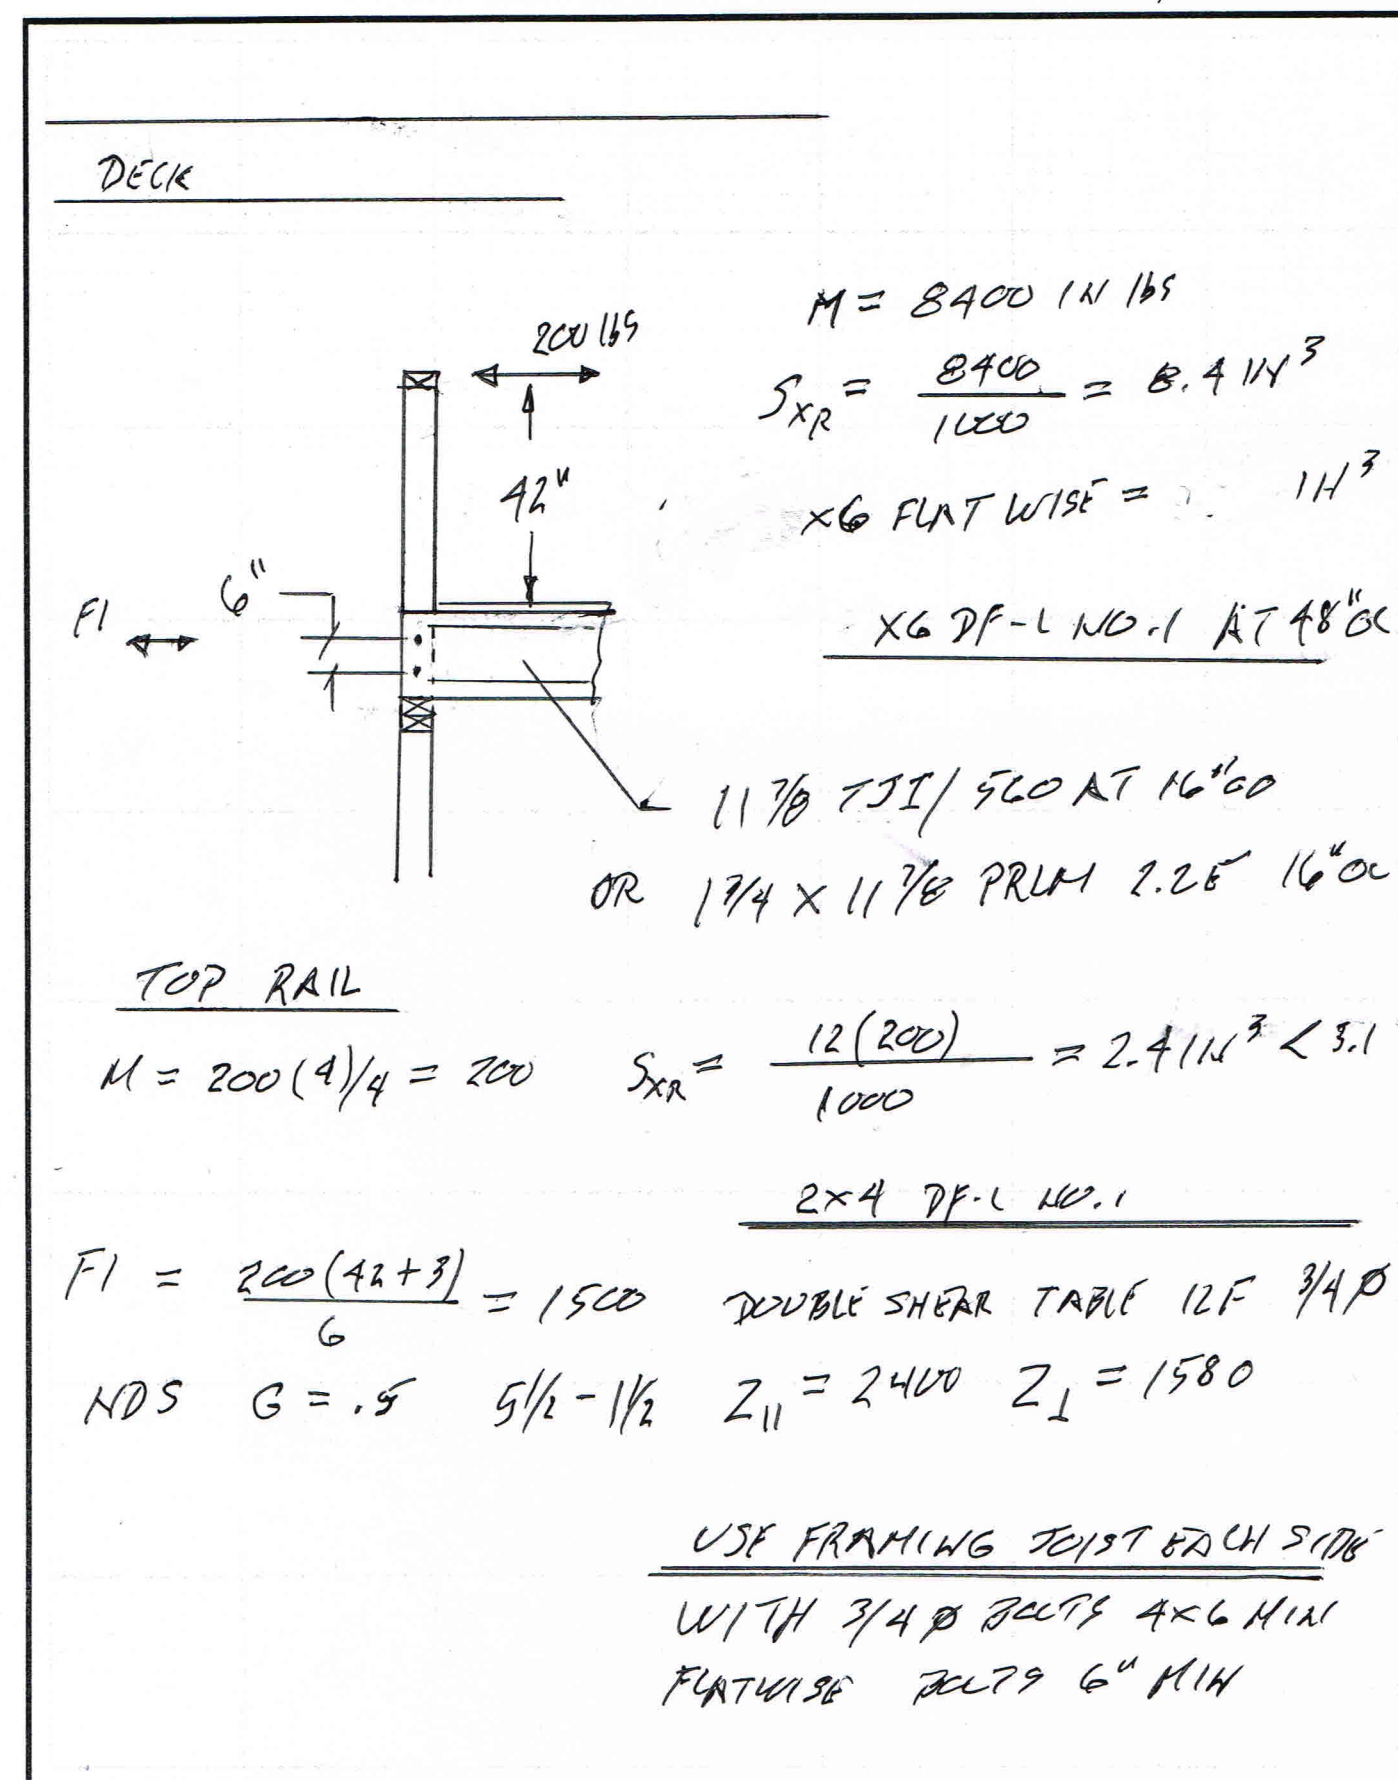 DECK
M = 8400 IN lbs
200 lbs
S_XR = 8400 / 1000 = 8.4 IN³
42"
X6 FLAT WISE = IN³
6"
F1
X6 DF-L NO.1 AT 48" OC
11 7/8 TJI/560 AT 16" OC
OR 1 3/4 X 11 7/8 PRLM 2.2E 16" OC
TOP RAIL
M = 200(4)/4 = 200 S_XR = 12(200) / 1000 = 2.4 IN³ < 3.1
2X4 DF-L NO.1
F1 = 200(42+3) / 6 = 1500 DOUBLE SHEAR TABLE 12F 3/4 Ø
NDS G = .5 5 1/2 - 1 1/2 Z_|| = 2400 Z_⊥ = 1580
USE FRAMING JOIST EACH SIDE
WITH 3/4 Ø BOLTS 4X6 MIN
FLATWISE BOLTS 6" MIN